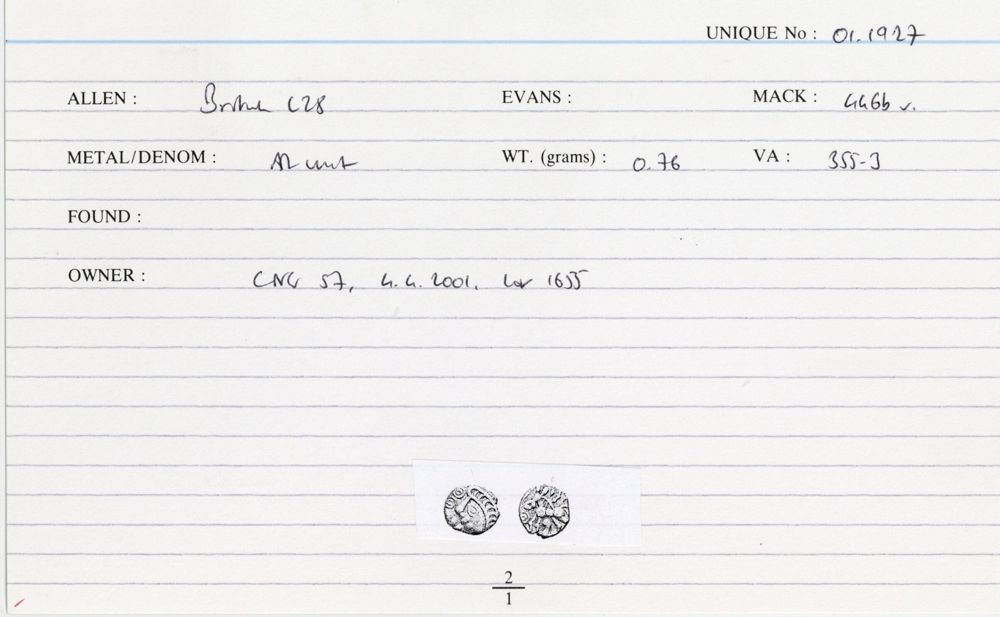 UNIQUE No : 01.1927
ALLEN : British L28 EVANS : MACK : 446b v.
METAL/DENOM : AR unit WT. (grams) : 0.76 VA : 355-3
FOUND :
OWNER : CNG 57, 4.4.2001, lot 1655
2
1